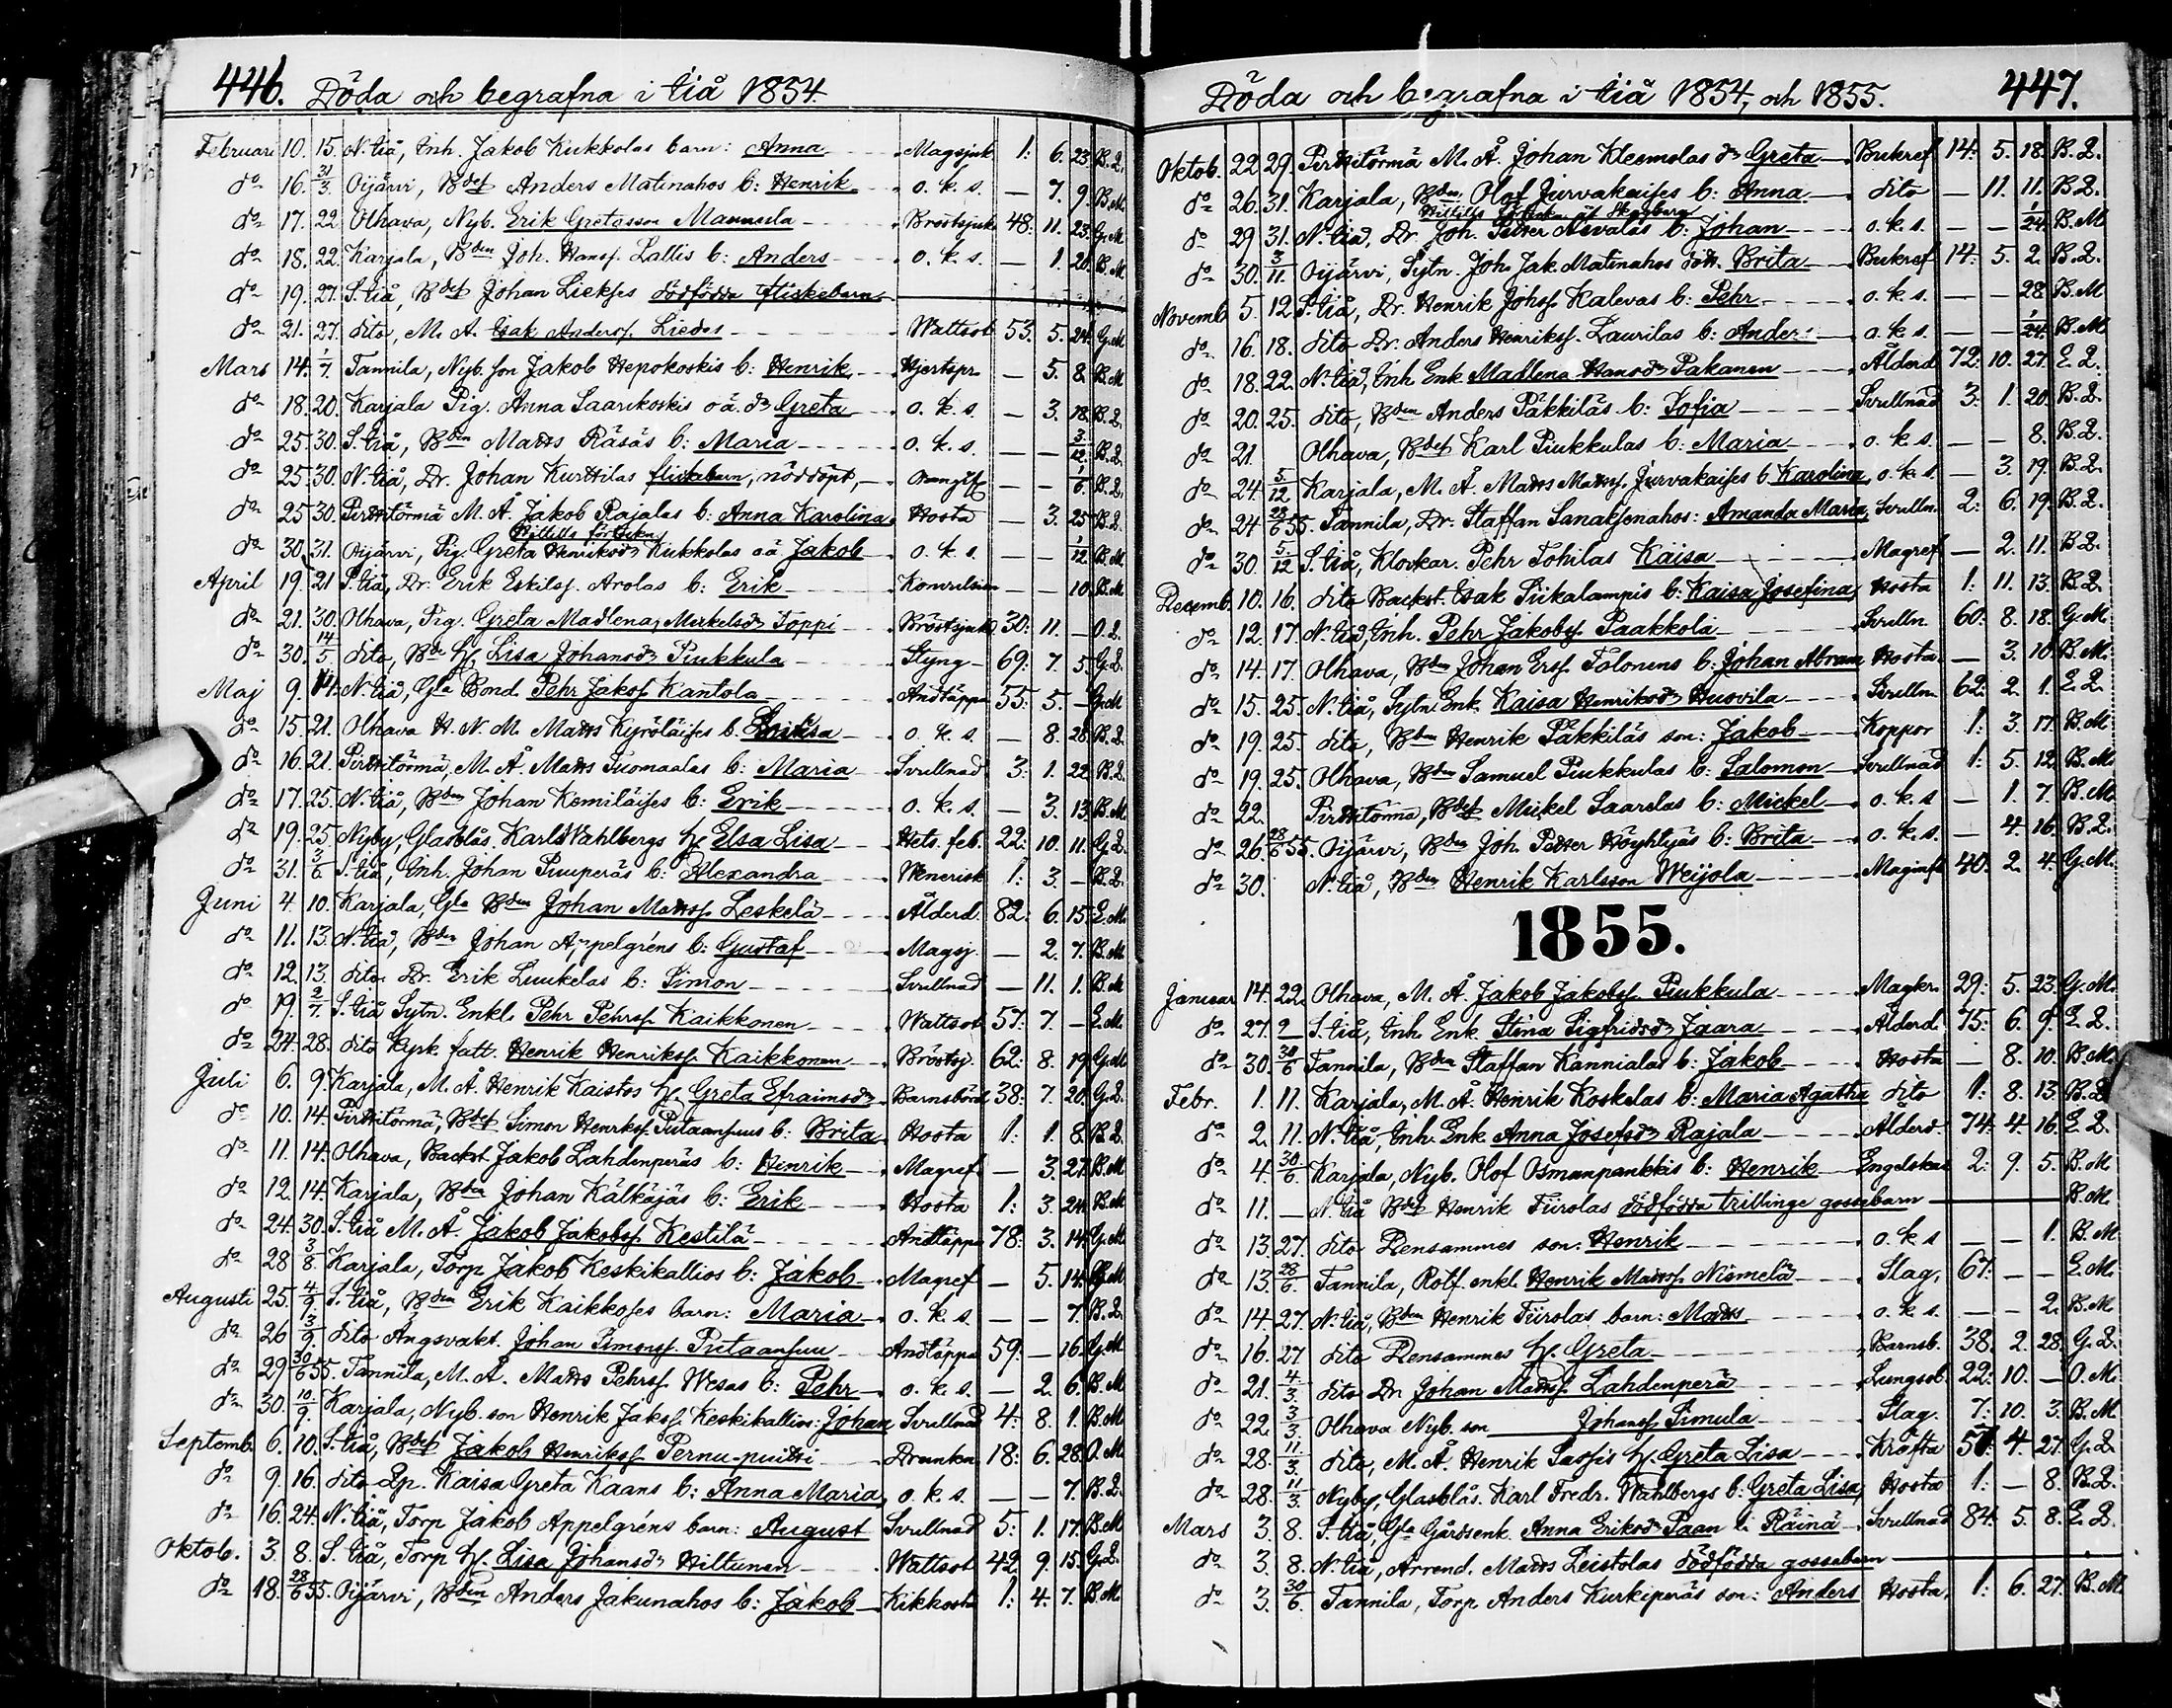 446. Döda och begrafna i Iiå 1854.
Februari 10. 15. N. Iiå, Inh. Jakob Kukkolas barn: Anna Magsjuk 1: 6. 23. B.Q.
do 16. 31/3. Oijärvi, Bdes Anders Matinahos b: Henrik o. k. s. — 7. 9. B.M.
do 17. 22. Olhava, Nyb. Erik Gretasson Mannula Bröstsjuk. 48: 11. 23. G.M
do 18. 22. Karjala, Bden Joh. Hansf. Lallis b: Anders o. k. s. — 1. 20. B.M
do 19. 27. S. Iiå, Bdes Johan Liekfes dödfödda flickebarn
do 21. 27. dito, M. Å. Isak Andersf. Liedes Wattsot 53. 5. 24. G.M
Mars 14. 1/7. Tannila, Nyb. son Jakob Hepokoskis b: Henrik Hjertspr. — 5. 8. B.M
do 18. 20. Karjala Pig. Anna Saarikoskis oä. dr Greta o. k. s. — 3. 18. B.Q.
do 25. 30. S. Iiå, Bden Matts Räsäs b: Maria o. k. s. — — 3/12. B.Q.
do 25. 30. N. Iiå, Dr. Johan Kurttilas flickebarn, nöddöpt, — — 1/6. B.Q.
do 25. 30. Pirttitörmä M. Å. Jakob Rajalas b: Anna Karolina Hosta — 3. 25 B.Q.
do 30. 31. Oijärvi, Pig. Greta Henriksdr Kukkolas oä Jakob o. k. s. — — 1/12 B.M
April 19. 21 S. Iiå, Dr. Erik Eskilsf. Arolas b: Erik Konvulsion — — 10. B.M
do 21. 30. Olhava, Pig. Greta Madlena, Mickelsdr Toppi Bröstsjukd. 30: 11. — O.Q.
do 30. 14/5. dito, Bde H. Lisa Johansdr Pukkula Styng 69: 7. 5. G.Q.
Maj 9. 14. N. Iiå, Gla Bond. Pehr Jakosf. Kantola Andtäppa 55: 5. — G.M
do 15. 21. Olhava H. N. M. Matts Kyröläifes b. Lovisa o. k. s. — 8. 28. B.Q.
do 16. 21. Pirttitörmä, M. Å. Matts Tuomaalas b: Maria Svullnad 3: 1. 22. B.Q.
do 17. 25. N. Iiå, Bden Johan Kemiläifes b: Erik o. k. s. — 3. 13. B.M
do 19. 25. Nyby, Glasblås. Karl Wahlbergs H. Elsa Lisa Hets. feb. 22: 10. 11. G.Q.
do 31. 3/6 S. Iiå, Inh. Johan Puuperäs b: Alexandra Wenerisk 1: 3. — B.Q.
Juni 4. 10. Karjala, Gla Bden Johan Mattsf. Leskelä Ålderd. 82: 6. 15. E.M.
do 11. 13. N. Iiå, Bden Johan Appelgréns b: Gustaf Magsj. — 2. 7. B.M
do 12. 13. dito Dr. Erik Luukelas b: Simon Svullnad — 11. 1. B.M
do 19. 2/7. S. Iiå Sytn. Enkl. Pehr Pehrsf. Kaikkonen Wattsot 57: 7. — E.M.
do 24. 28. dito Kyrk. fatt. Henrik Henriksf. Kaikkonen Bröstsj. 62: 8. 19 G.M
Juli 6. 9. Karjala, M. Å. Henrik Kaistos H. Greta Efraimsdr Barnsbörd 38: 7. 20. G.Q.
do 10. 14. Pirttitörmä, Bdes Simon Henrksf. Putaansuus b: Brita Hosta 1: 1. 8. B.Q.
do 11. 14. Olhava, Backst Jakob Lahdenperäs b: Henrik Magref — 3. 27. B.M
do 12. 14. Karjala, Bden Johan Kälkäjäs b: Erik Hosta 1: 3. 24. B.M
do 24. 30. S. Iiå M. Å. Jakob Jakobsf. Kestilä Andtäppa 78: 3. 14. G.M
do 28 3/8. Karjala, Torp. Jakob Keskikallios b: Jakob Magref — 5. 14. B.M
Augusti 25. 4/9. S. Iiå, Bden Erik Kaikkofes barn: Maria o. k. s. — — 7. B.Q.
do 26 3/9. dito Ångsvakt. Johan Simonsf. Putaansuu Andtäppa 59: — 16. G.M
do 29. 30/6 55. Tannila, M. Å. Matts Pehrsf. Wesas b: Pehr o. k. s. — 2. 6. B.M
do 30. 10/9. Karjala, Nyb. son Henrik Jaksf. Keskikallios: Johan Svullnad 4: 8. 1. B.M
Septemb. 6. 10. S. Iiå, Bdes Jakob Henriksf. Pernu-puitti Drunkn. 18: 6. 28. O.M
do 9. 16. dito Lp. Kaisa Greta Kaans b: Anna Maria o. k. s. — — 7. B.Q.
do 16. 24. N. Iiå, Torp Jakob Appelgréns barn: August Svullnad 5: 1. 17. B.M
Oktob. 3. 8. S. Iiå, Torp H. Lisa Johansdr Hiltunen Wattsot 42. 9. 15. G.Q.
do 18. 28/6 55. Oijärvi, Bden Anders Jakunahos b: Jakob Kikkosta 1: 4. 7. B.M.
Döda och begrafna i Iiå 1854, och 1855. 447.
Oktob. 22 29. Pirttitörmä M. Å. Johan Kleemolas dr Greta Bukref 14: 5. 18. B.Q.
do 26. 31. Karjala, Bden Olof Jurvakaifes b: Anna dito — 11. 11. B.Q.
do 29 31. N. Iiå, Dr. Joh. Petter Asvalas b: Johan o. k. s. — — 1/24. B.M
do 30. 3/11. Oijärvi, Sytn. Joh. Jak. Matinahos dött. Brita Bukref 14: 5. 2. B.Q.
Novemb 5. 12. S. Iiå, Dr. Henrik Johsf. Kalevas b: Pehr o. k. s. — — 28. B.M
do 16. 18. dito Dr. Anders Henriksf. Laurilas b: Anders o. k. s. — — 1/24. B.M
do 18. 22. N. Iiå, Inh. Enk Madlena Hansdr Pakanen Ålderd 72: 10. 27. E.Q.
do 20. 25. dito, Bden Anders Päkkiläs b: Sofia Svullnad 3: 1. 20. B.Q.
do 21. Olhava, Bdes Karl Pukkulas b: Maria o. k. s. — — 8. B.Q.
do 24. 5/12 Karjala, M. Å. Matts Mattsf. Jurvakaifes b. Karolina o. k. s — 3. 19. B.Q.
do 24 28/6 55. Tannila, Dr. Staffan Sanaksenahos: Amanda Maria, Svulln. 2: 6. 19. B.Q.
do 30. 5/12 S. Iiå, Klockar. Pehr Tohilas Kaisa Magref — 2. 11. B.Q.
Decemb. 10. 16. dito Backst. Isak Siikalampis b: Kaisa Josefina, Hosta 1: 11. 13. B.Q.
do 12. 17. N. Iiå, Inh. Pehr Jakobsf. Paakkola Svulln. 60: 8. 18. G.M.
do 14. 17. Olhava, Bden Johan Ersf. Tolonens b: Johan Abram Hosta — 3. 10. B.M.
do 15. 25. N. Iiå, Sytn. Enk. Kaisa Henriksdr Huovila Svulln. 62: 2. 1. E.Q.
do 19. 25. dito, Bden Henrik Päkkiläs son: Jakob Koppor 1: 3. 17. B.M.
do 19. 25. Olhava, Bden Samuel Pukkulas b: Salomon Svullnad 1: 5. 12. B.M
do 22. Pirttitörmä, Bdes Mickel Saarelas b: Mickel o. k. s — 1. 7. B.M.
do 26. 28/6 55. Oijärvi, Bden Joh. Petter Höyhtyäs b: Brita o. k. s. — 4. 16. B.Q.
do 30. N. Iiå, Bden Henrik Karlsson Weijola 40: 2. 4. G.M.
1855.
Januar 14. 22. Olhava, M. Å. Jakob Jakobsf. Pukkula Magkr. 29: 5. 23. G.M.
do 27. 2 S. Iiå, Inh. Enk. Stina Sigfridsdr Jaara Ålderd. 75: 6. 9. E.Q.
do 30. 30/6 Tannila, Bden Staffan Kannialas b: Jakob Hosta — 8. 10. B.M.
Febr. 1. 11. Karjala, M. Å. Henrik Koskelas b: Maria Agatha dito 1: 8. 13. B.Q
do 2. 11. N. Iiå, Inh. Enk Anna Josefsdr Rajala Ålderd. 74: 4. 16. E.Q.
do 4. 30/6. Karjala, Nyb. Olof Osmanpankkis b: Henrik Engelskas. 2: 9. 5. B.M
do 11. — N. Iiå Bdes Henrik Tiirolas dödfödda trillinge gossebarn B.M.
do 13. 27. dito Densammes son: Henrik o. k. s — — 1. B.M.
do 13. 28/6. Tannila, Rotf. enkl. Henrik Mattsf. Niemelä Slag. 67: — — E.M.
do 14. 27. N. Iiå, Bden Henrik Tiirolas barn: Matts o. k. s. — — 2. B.M
do 16. 27 dito Densammes H. Greta Barnsb. 38. 2. 28. G.Q.
do 21. 4/3. dito Dr Johan Mattsf. Lahdenperä Lungsot. 22: 10. — O.M.
do 22. 3/3. Olhava Nyb. son Johansf. Simula Slag. 7: 10. 3. B.M
do 28. 11/3. dito, M. Å. Henrik Sassis H. Greta Lisa Kräfta 51: 4. 27. G.Q.
do 28. 11/3. Nyby, Glasblås. Karl Fredr. Wahlbergs b: Greta Lisa, Hosta 1: — 8. B.Q.
Mars 3. 8. S. Iiå, Gla Gårdsenk. Anna Eriksdr Paan l. Räinä Svullnad 84: 5. 8. E.Q.
do 3. 8. N. Iiå, Arrend. Matts Leistolas dödfödda gossebarn
do 3. 30/6. Tannila, Torp Anders Kurkiperäs son: Anders Hosta, 1: 6. 27. B.M.